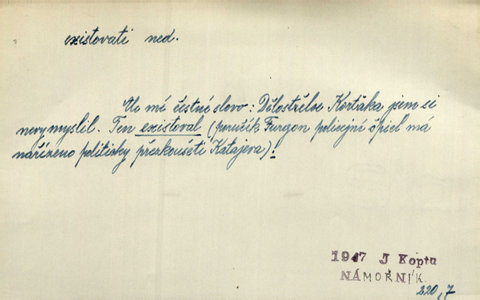 existovati ned.
Na mé čestné slovo: Dělostřelce Kosťáka jsem si
nevymyslil. Ten existoval (poručík Furgon policejní špicl má
nařízeno politicky přezkoušeti Katajeva)!
1947 J Koptu
NÁMOŘNÍK
220,7